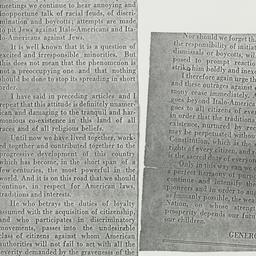 meetings we continue to hear annoying and
inopportune talk of racial feuds, of discri-
mination and boycotts; attempts are made
to pit Jews against Italo-Americans and Ita-
lo-Americans against Jews.
It is well known that it is a question of
excited and irresponsible minorities. But
this does not mean that the phenomenon is
not a preoccupying one and that nothing
should be done to stop its spreading in short
order.
I have said in preceding articles and I
repeat that this attitude is definitely unameri-
can and damaging to the tranquil and har-
monious co-existence in this land of all
races and of all religious beliefs.
Until now we have lived together, work-
ed together and contributed together to the
progressive development of this country
which has become, in the short span of a
few centuries, the most powerful in the
world. And it is on this road that we should
continue, in respect for American laws,
traditions and interests.
He who betrays the duties of loyalty
assumed with the acquisition of citizenship,
and who participates in discriminatory
movements, passes into the undesirable
class of citizens against whom American
authorities will not fail to act with all the
severity demanded by the gravness of the
Nor should we forget th
the responsibility of initiat
dismissals or boycotts, wil
posed to prompt reactio
risking him boldly and inexo
I therefore again urge th
and these outrages against
mony cease immediately.
goes beyond Italo-America
goes to all citizens of ever
in order that the tradition
existence, nurtured by re
may be perpetuated within
Constitution, which is the
rights of every citizen, and
is the sacred duty of everyone
Only in this way can we
perfect harmony of purp
continue to intensify the
powers and in order to as
as humanly possible, the wea
Nation, on whose strength
prosperity depends our futu
our children.
GENERO